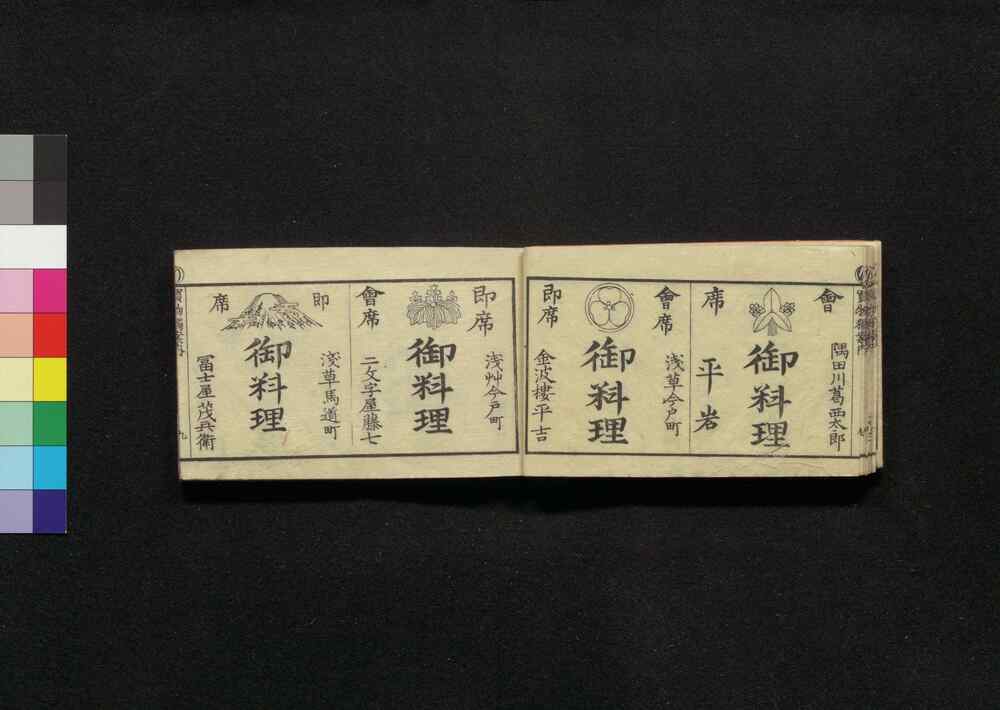 會席
隅田川葛西太郎
御料理
平岩
會席
即席
浅草今戸町
御料理
金波樓平吉
即席
會席
浅艸今戸町
御料理
二文字屋藤七
即席
浅草馬道町
御料理
冨士屋茂兵衛
九